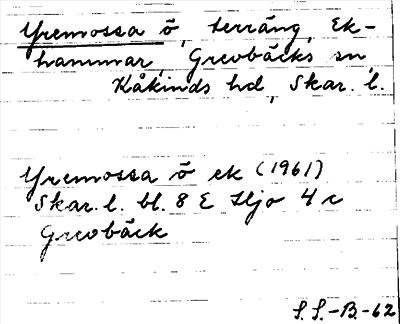 Yremossa ö, terräng, Ek-
hammar, Grevbäcks sn
Kåkinds hd, Skar. l.
Yremossa ö ek (1961)
Skar. l. bl. 8 E Hjo 4 c
Grevbäck
S. S.-B.-62